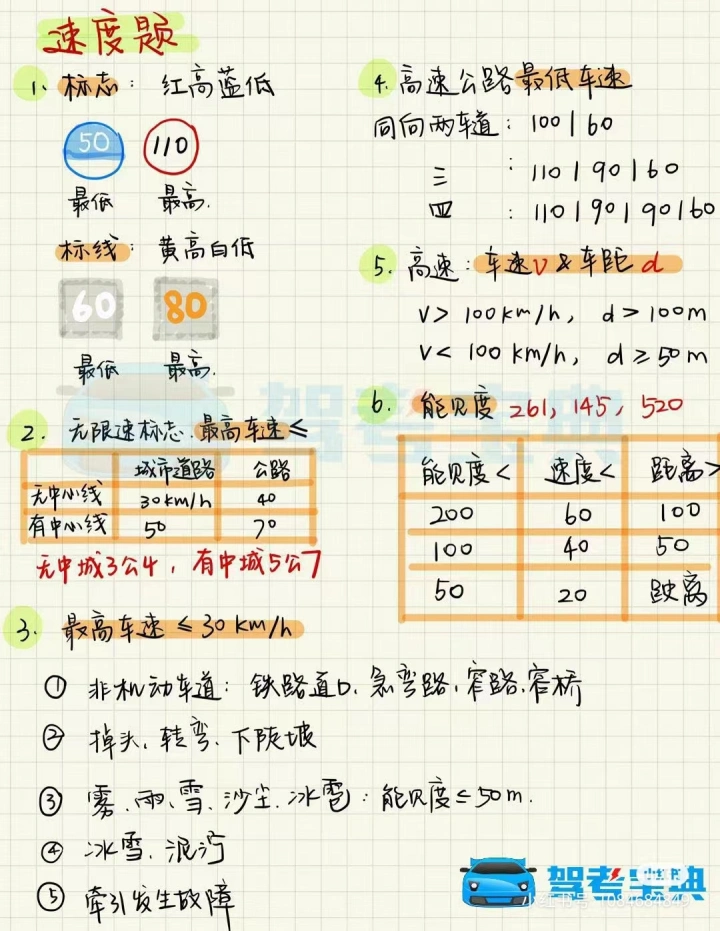 速度题
1、标志：红高蓝低
50 110
最低 最高.
标线：黄高白低
60 80
最低 最高.
2. 无限速标志.最高车速≤
城市道路 公路
无中心线 30km/h 40
有中心线 50 70
无中城3公4，有中城5公7
3. 最高车速≤30km/h
① 非机动车道：铁路道口、急弯路、窄路、窄桥
② 掉头、转弯、下陡坡
③ 雾、雨、雪、沙尘、冰雹：能见度≤50m.
④ 冰雪、泥泞
⑤ 牵引发生故障
4. 高速公路最低车速
同向两车道：100|60
三 ：110|90|60
四 ：110|90|90|60
5. 高速：车速v&车距d
v>100km/h, d>100m
v<100km/h, d≥50m
6. 能见度 261, 145, 520
能见度< 速度< 距离>
200 60 100
100 40 50
50 20 驶离
驾考宝典
驾考宝典